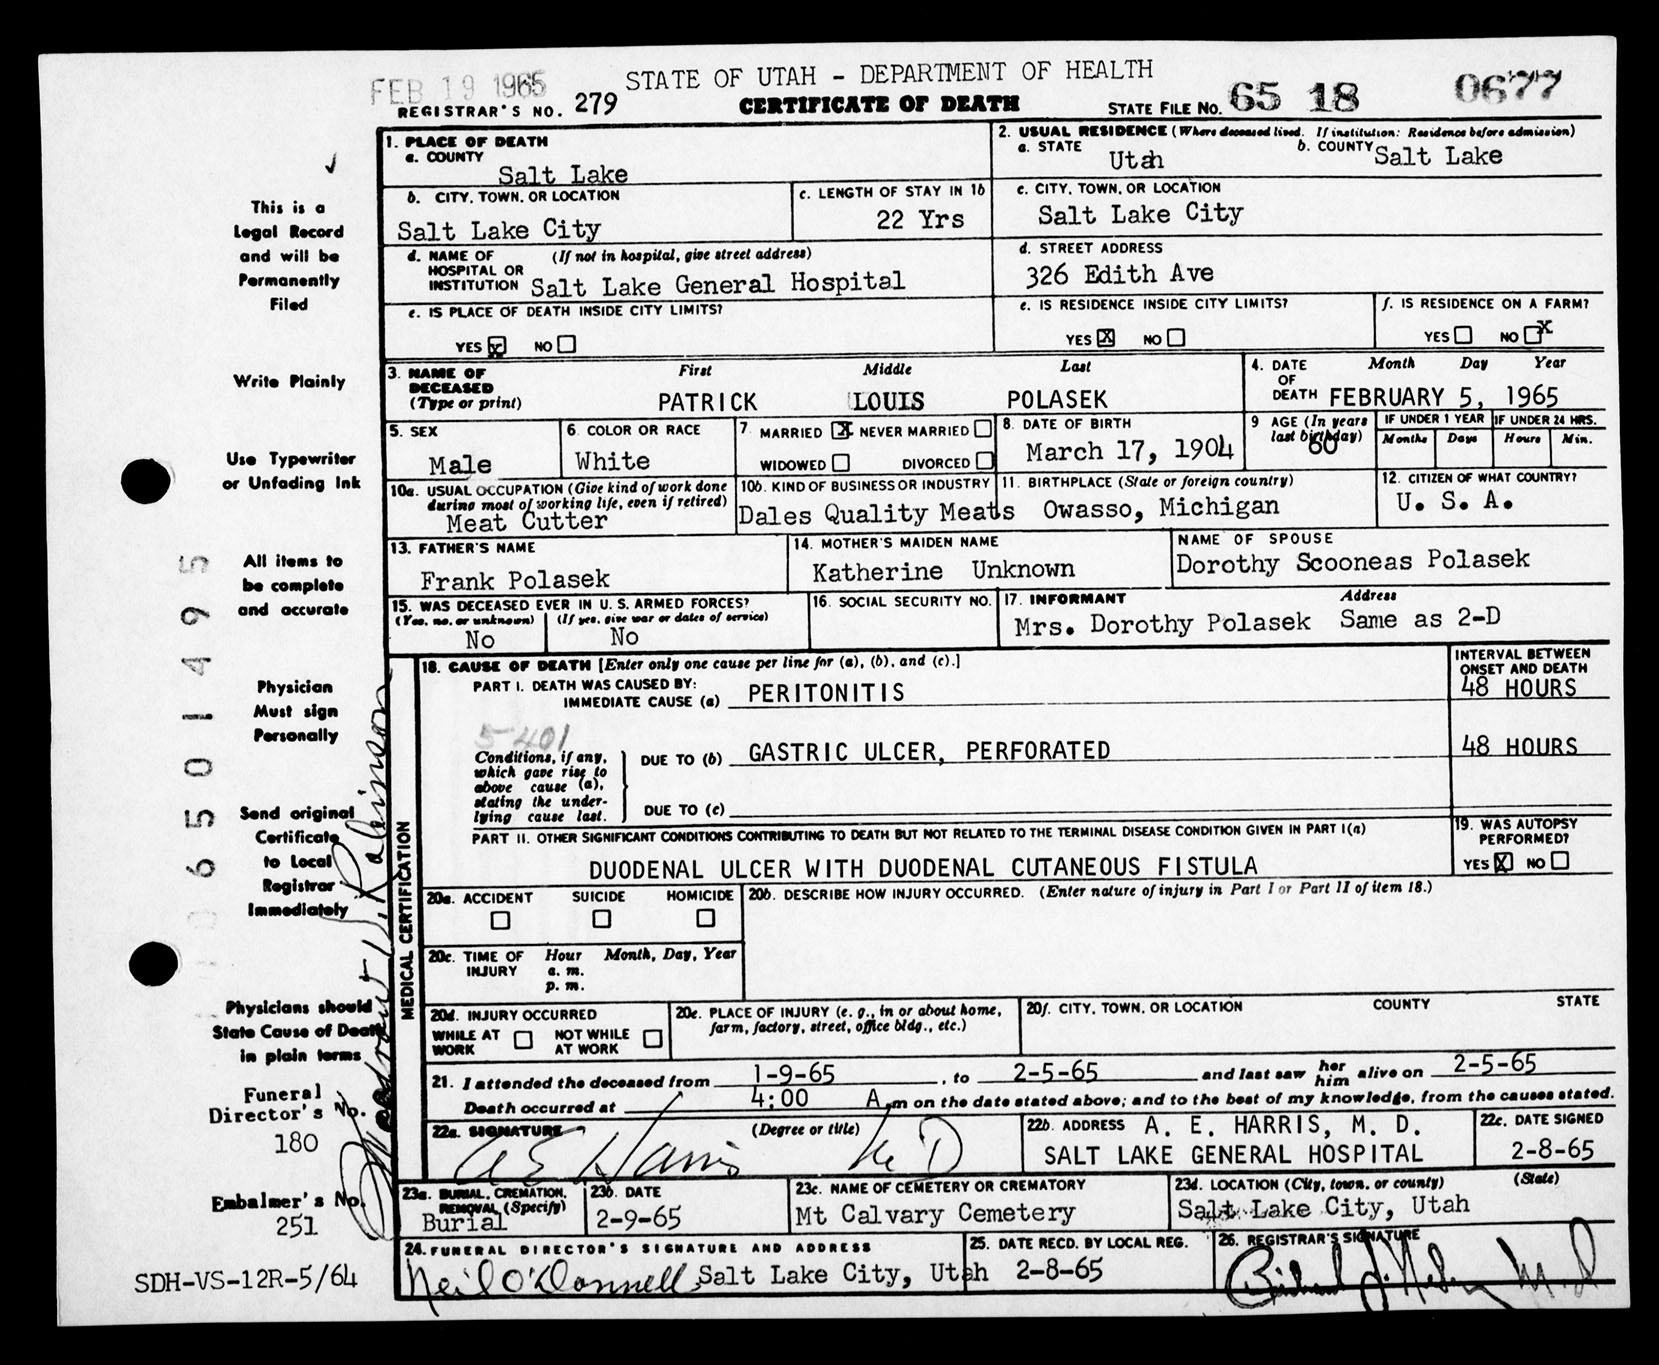 FEB 19 1965
STATE OF UTAH - DEPARTMENT OF HEALTH
REGISTRAR'S NO. 279
CERTIFICATE OF DEATH
STATE FILE NO. 65 18 0677
1. PLACE OF DEATH
a. COUNTY
Salt Lake
2. USUAL RESIDENCE (Where deceased lived. If institution: Residence before admission)
a. STATE Utah
b. COUNTY Salt Lake
b. CITY, TOWN, OR LOCATION
Salt Lake City
c. LENGTH OF STAY IN 1b
22 Yrs
c. CITY, TOWN, OR LOCATION
Salt Lake City
d. NAME OF HOSPITAL OR INSTITUTION (If not in hospital, give street address)
Salt Lake General Hospital
d. STREET ADDRESS
326 Edith Ave
e. IS PLACE OF DEATH INSIDE CITY LIMITS?
YES X NO
e. IS RESIDENCE INSIDE CITY LIMITS?
YES X NO
f. IS RESIDENCE ON A FARM?
YES NO X
3. NAME OF DECEASED (Type or print)
First Middle Last
PATRICK LOUIS POLASEK
4. DATE OF DEATH
Month Day Year
FEBRUARY 5, 1965
5. SEX
Male
6. COLOR OR RACE
White
7. MARRIED X NEVER MARRIED
WIDOWED DIVORCED
8. DATE OF BIRTH
March 17, 1904
9 AGE (In years last birthday)
60
IF UNDER 1 YEAR
Months Days
IF UNDER 24 HRS.
Hours Min.
10a. USUAL OCCUPATION (Give kind of work done during most of working life, even if retired)
Meat Cutter
10b. KIND OF BUSINESS OR INDUSTRY
Dales Quality Meats
11. BIRTHPLACE (State or foreign country)
Owasso, Michigan
12. CITIZEN OF WHAT COUNTRY?
U. S. A.
13. FATHER'S NAME
Frank Polasek
14. MOTHER'S MAIDEN NAME
Katherine Unknown
NAME OF SPOUSE
Dorothy Scooneas Polasek
15. WAS DECEASED EVER IN U. S. ARMED FORCES?
(Yes, no, or unknown) (If yes, give war or dates of service)
No No
16. SOCIAL SECURITY NO.
17. INFORMANT Address
Mrs. Dorothy Polasek Same as 2-D
18. CAUSE OF DEATH [Enter only one cause per line for (a), (b), and (c).]
INTERVAL BETWEEN ONSET AND DEATH
PART I. DEATH WAS CAUSED BY:
IMMEDIATE CAUSE (a) PERITONITIS
48 HOURS
5401
Conditions, if any, which gave rise to above cause (a), stating the underlying cause last.
DUE TO (b) GASTRIC ULCER, PERFORATED
48 HOURS
DUE TO (c)
PART II. OTHER SIGNIFICANT CONDITIONS CONTRIBUTING TO DEATH BUT NOT RELATED TO THE TERMINAL DISEASE CONDITION GIVEN IN PART I(a)
DUODENAL ULCER WITH DUODENAL CUTANEOUS FISTULA
19. WAS AUTOPSY PERFORMED?
YES X NO
20a. ACCIDENT SUICIDE HOMICIDE
20b. DESCRIBE HOW INJURY OCCURRED. (Enter nature of injury in Part I or Part II of item 18.)
20c. TIME OF INJURY Hour a. m. p. m. Month, Day, Year
20d. INJURY OCCURRED
WHILE AT WORK NOT WHILE AT WORK
20e. PLACE OF INJURY (e. g., in or about home, farm, factory, street, office bldg., etc.)
20f. CITY, TOWN, OR LOCATION COUNTY STATE
21. I attended the deceased from 1-9-65, to 2-5-65 and last saw her him alive on 2-5-65
Death occurred at 4:00 A. m on the date stated above; and to the best of my knowledge, from the causes stated.
22a. SIGNATURE (Degree or title)
A E Harris M D
22b. ADDRESS A. E. HARRIS, M. D.
SALT LAKE GENERAL HOSPITAL
22c. DATE SIGNED
2-8-65
23a. BURIAL, CREMATION, REMOVAL (Specify)
Burial
23b. DATE
2-9-65
23c. NAME OF CEMETERY OR CREMATORY
Mt Calvary Cemetery
23d. LOCATION (City, town, or county) (State)
Salt Lake City, Utah
24. FUNERAL DIRECTOR'S SIGNATURE AND ADDRESS
Neil O'Donnell Salt Lake City, Utah
25. DATE RECD. BY LOCAL REG.
2-8-65
26. REGISTRAR'S SIGNATURE
MEDICAL CERTIFICATION
This is a
Legal Record
and will be
Permanently
Filed
Write Plainly
Use Typewriter
or Unfading Ink
All items to
be complete
and accurate
Physician
Must sign
Personally
Send original
Certificate
to Local
Registrar
Immediately
Physicians should
State Cause of Death
in plain terms
Funeral
Director's No.
180
Embalmer's No.
251
SDH-VS-12R-5/64
6501495